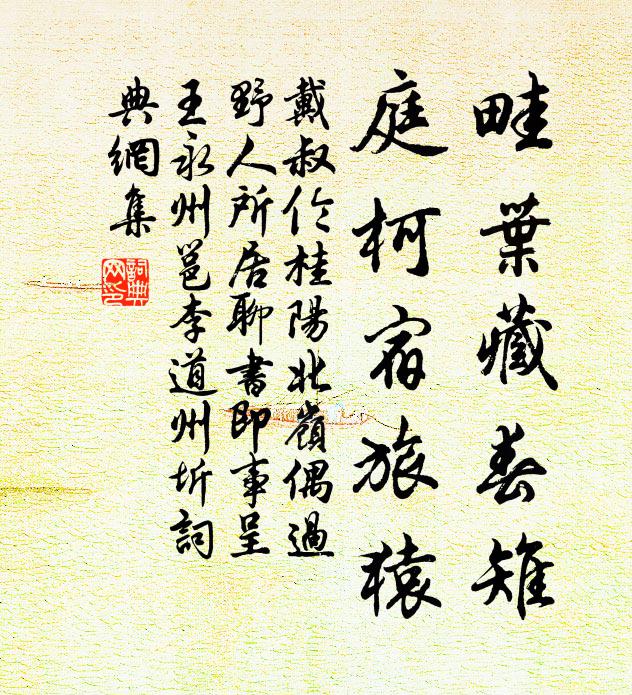 畦葉藏春雉
庭柯宿旅猿
戴叔伦桂陽北嶺偶過
野人所居聊書即事呈
王永州邕李道州圻詞
典網集
詞典
网印